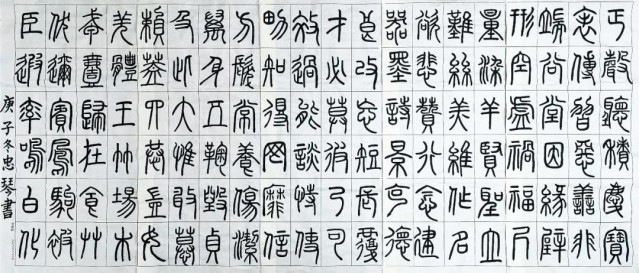 臣伏戎羌賴及萬方男效才良器欲難量形端表正
遐邇壹體蓋此身髮知過必改墨悲絲染空谷傳聲
率賓歸王四大五常得能莫忘詩讚羔羊虛堂習聽
鳴鳳在竹恭惟鞠養罔談彼短景行維賢禍因惡積
白駒食場豈敢毀傷靡恃己長克念作聖福緣善慶
化被草木女慕貞潔信使可覆德建名立尺璧非寶
庚子冬忠琴書